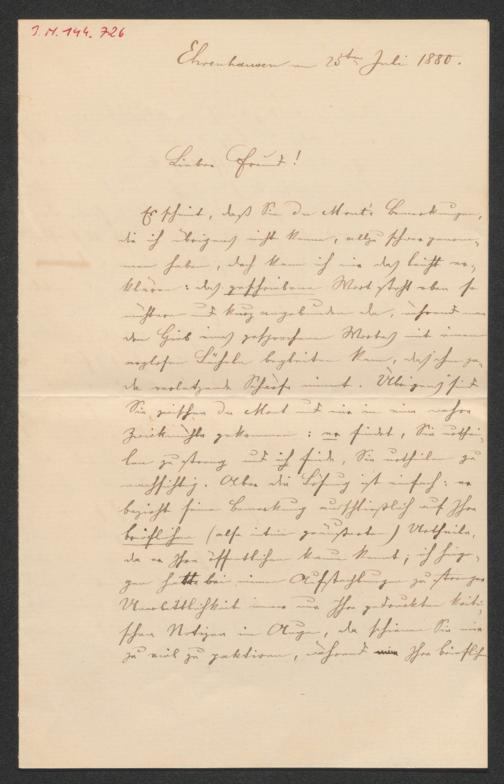 I.N. 144.726
Ehrenhausen am 25ten Juli 1880.
Lieber Freund!
Es scheint, daß Sie du Mont's Bemerkungen,
die ich übrigens nicht kenne, allzu schwer genom-
men haben, doch kann ich mir das leicht er-
klären: das geschriebene Wort steht eben so
nüchtern und kurz angebunden da, während man
den Hieb eines gesprochenen Wortes mit einem
harmlosen Lächeln begleiten kann, das ihm ge-
rade verletzende Schärfe nimmt. Übrigens sind
Sie zwischen du Mont und mir in eine wahre
Zwickmühle gekommen: er findet, Sie urthei-
len zu streng und ich finde, Sie urtheilen zu
nachsichtig. Aber die Lösung ist einfach: er
bezieht seine Bemerkung ausschließlich auf Ihre
brieflichen (also intim geäußerten) Urtheile,
da er Ihre öffentlichen kaum kennt; ich hin-
gegen hatte bei meinen zu strenger
Unerbittlichkeit immer nur Ihre gedruckten kriti-
schen Notizen im Auge, da schienen Sie mir
zu viel zu paktiren, während Ihre brieflich